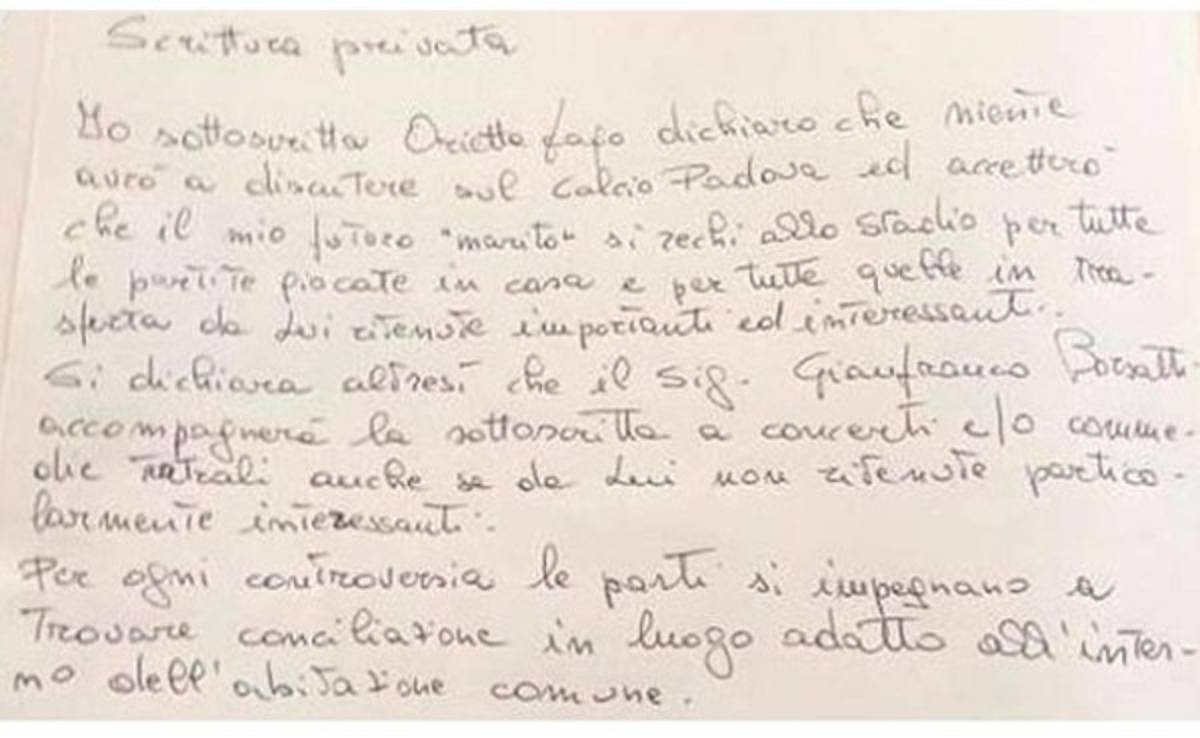 Scrittura privata
Io sottoscritta Orietta Fafo dichiaro che niente
avrò a discutere sul Calcio Padova ed accetterò
che il mio futuro "marito" si rechi allo stadio per tutte
le partite giocate in casa e per tutte quelle in tra-
sferta da Lui ritenute importanti ed interessanti.
Si dichiara altresì che il Sig. Gianfranco Borsatti
accompagnerà la sottoscritta a concerti e/o comme-
die teatrali anche se da Lui non ritenute partico-
larmente interessanti.
Per ogni controversia le parti si impegnano a
trovare conciliazione in luogo adatto all'inter-
no dell'abitazione comune.